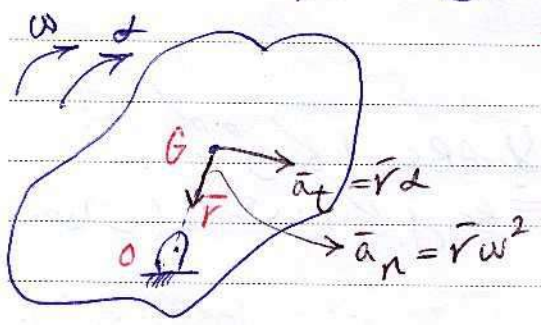 ω α
G
a̅t = r̅α
r̅
O
a̅n = r̅ω²